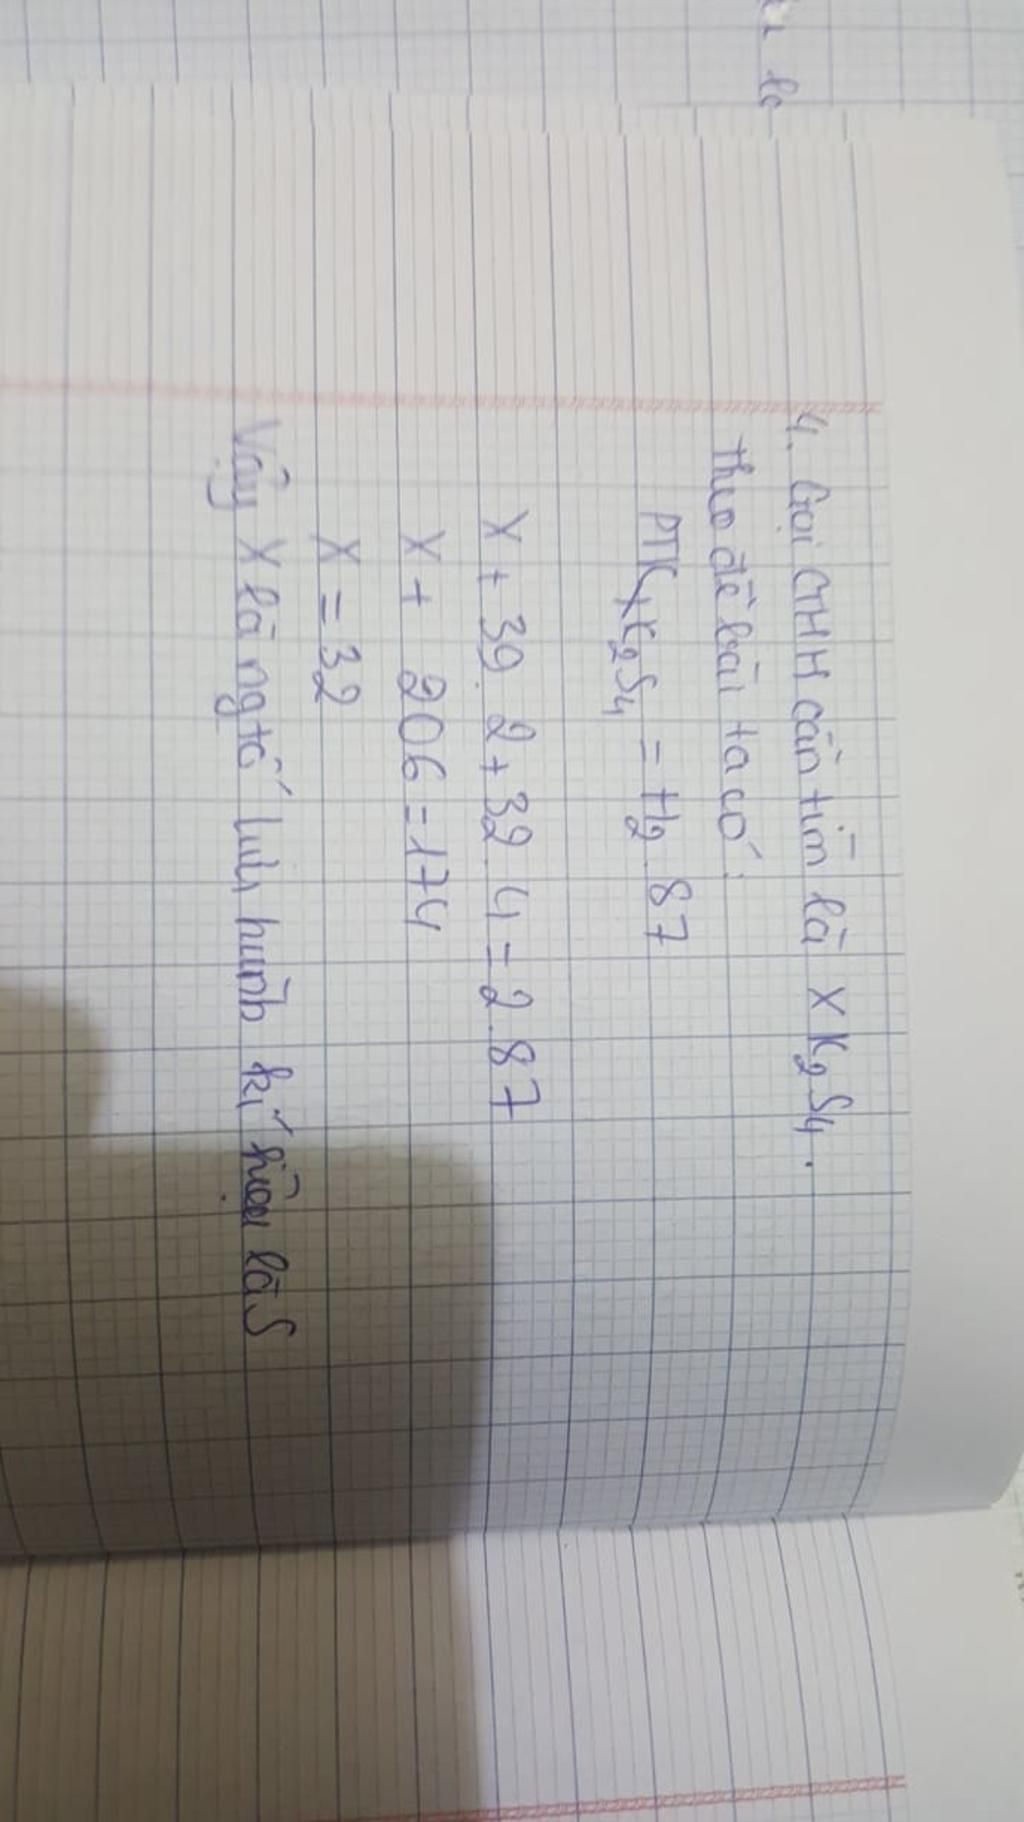 4. Gọi CTHH cần tìm là XK2S4.
theo đề bài ta có:
PTK XK2S4 = H2.87
X + 39.2 + 32.4 = 2.87
X + 206 = 174
X = 32
Vậy X là ngtố lưu huỳnh kí hiệu là S